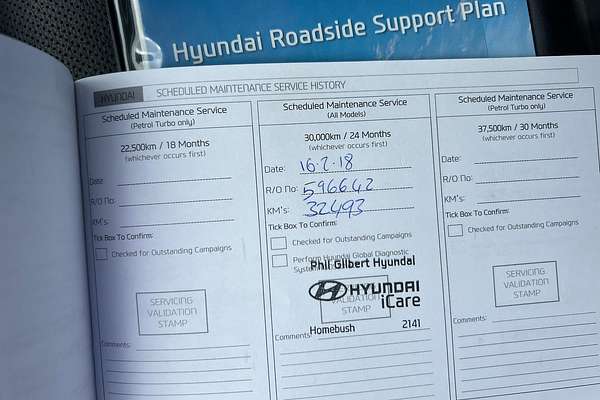 Hyundai Roadside Support Plan
HYUNDAI SCHEDULED MAINTENANCE SERVICE HISTORY
Scheduled Maintenance Service
(Petrol Turbo only)
22,500km / 18 Months
(whichever occurs first)
Date:
R/O No:
KM's:
Tick Box To Confirm:
Checked for Outstanding Campaigns
SERVICING
VALIDATION
STAMP
Comments:
Scheduled Maintenance Service
(All Models)
30,000km / 24 Months
(whichever occurs first)
Date: 16-2-18
R/O No: 596642
KM's: 32493
Tick Box To Confirm:
Checked for Outstanding Campaigns
Perform Hyundai Global Diagnostic
System
Phil Gilbert Hyundai
HYUNDAI
iCare
VALIDATION
STAMP
Homebush 2141
Comments:
Scheduled Maintenance Service
(Petrol Turbo only)
37,500km / 30 Months
(whichever occurs first)
Date:
R/O No:
KM's:
Tick Box To Confirm:
Checked for Outstanding Campaigns
SERVICING
VALIDATION
STAMP
Comments: